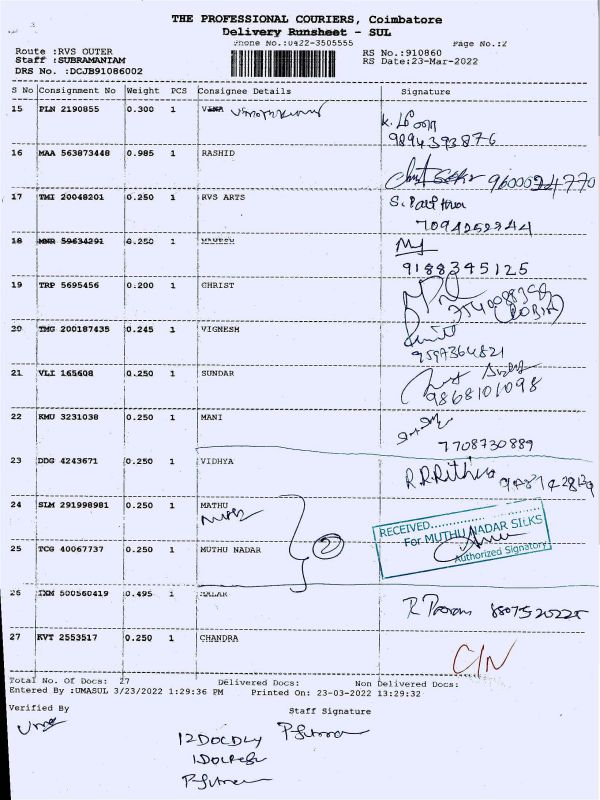 THE PROFESSIONAL COURIERS, Coimbatore
Delivery Runsheet - SUL
Phone No.:0422-3505555 Page No.:2
Route :RVS OUTER RS No.:910860
Staff :SUBRAMANIAM RS Date:23-Mar-2022
DRS No. :DCJB91086002
S No Consignment No Weight PCS Consignee Details Signature
15 PLN 2190855 0.300 1
9894393876
16 MAA 563873448 0.985 1 RASHID
17 TMI 20048201 0.250 1 RVS ARTS
7094252344
18 MNR 59634291 0.250 1 MAHESH
9188345125
19 TRP 5695456 0.200 1 CHRIST
20 TMG 200187435 0.245 1 VIGNESH
9597364821
21 VLI 165608 0.250 1 SUNDAR
9868101098
22 KMU 3231038 0.250 1 MANI
7708730889
23 DDG 4243671 0.250 1 VIDHYA
R.R.Rithis
24 SLM 291998981 0.250 1 MATHU
25 TCG 40067737 0.250 1 MUTHU NADAR
2
RECEIVED..................
For MUTHU NADAR SILKS
Authorized Signatory
26 IXM 500560419 0.495 1 MALAR
27 KVT 2553517 0.250 1 CHANDRA
C/N
Total No. Of Docs: 27 Delivered Docs: Non Delivered Docs:
Entered By :UMASUL 3/23/2022 1:29:36 PM Printed On: 23-03-2022 13:29:32
Verified By Staff Signature
12DOCDLY